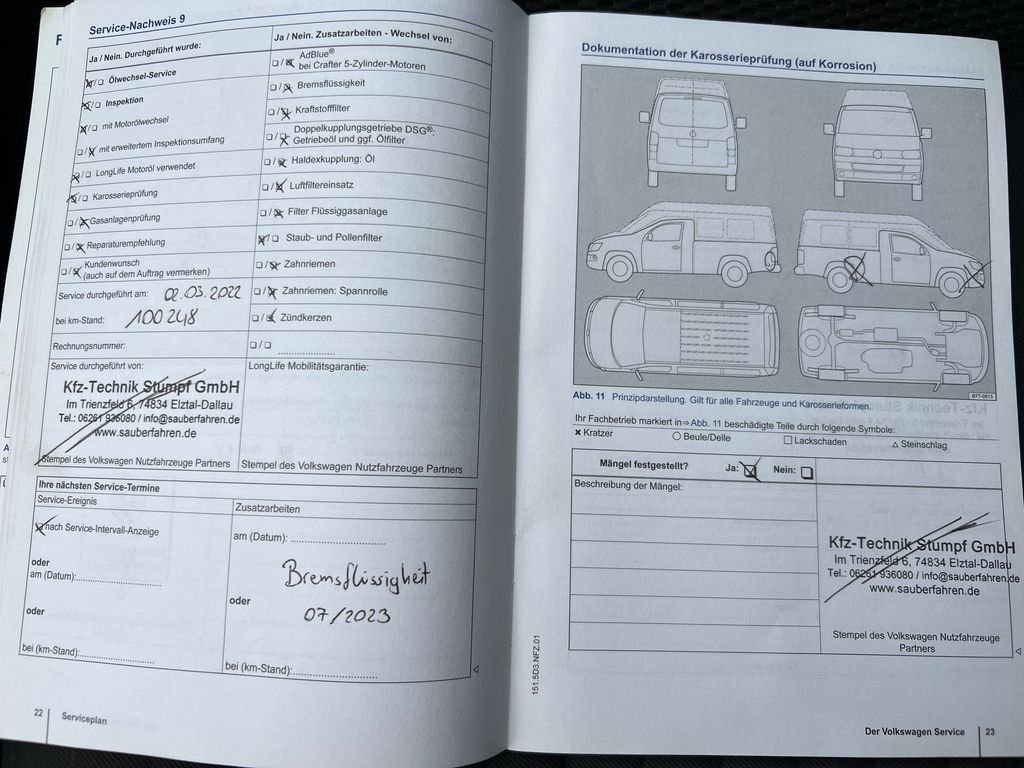 Service-Nachweis 9
Ja / Nein. Durchgeführt wurde:
Ölwechsel-Service
Inspektion
mit Motorölwechsel
mit erweitertem Inspektionsumfang
LongLife Motoröl verwendet
Karosserieprüfung
Gasanlagenprüfung
Reparaturempfehlung
Kundenwunsch
(auch auf dem Auftrag vermerken)
Service durchgeführt am: 02.03.2022
bei km-Stand: 100 248
Rechnungsnummer:
Service durchgeführt von:
Kfz-Technik Stumpf GmbH
Im Trienzfeld 6, 74834 Elztal-Dallau
Tel.: 06261 936080 / info@sauberfahren.de
www.sauberfahren.de
Stempel des Volkswagen Nutzfahrzeuge Partners
Ja / Nein. Zusatzarbeiten - Wechsel von:
AdBlue®
bei Crafter 5-Zylinder-Motoren
Bremsflüssigkeit
Kraftstofffilter
Doppelkupplungsgetriebe DSG®:
Getriebeöl und ggf. Ölfilter
Haldexkupplung: Öl
Luftfiltereinsatz
Filter Flüssiggasanlage
Staub- und Pollenfilter
Zahnriemen
Zahnriemen: Spannrolle
Zündkerzen
LongLife Mobilitätsgarantie:
Stempel des Volkswagen Nutzfahrzeuge Partners
Ihre nächsten Service-Termine
Service-Ereignis
nach Service-Intervall-Anzeige
oder
am (Datum):
oder
bei (km-Stand):
Zusatzarbeiten
am (Datum):
Bremsflüssigkeit
oder
07/2023
bei (km-Stand):
22
Serviceplan
Dokumentation der Karosserieprüfung (auf Korrosion)
BTT-0513
Abb. 11 Prinzipdarstellung. Gilt für alle Fahrzeuge und Karosserieformen.
Ihr Fachbetrieb markiert in ⇒ Abb. 11 beschädigte Teile durch folgende Symbole:
× Kratzer ○ Beule/Delle □ Lackschaden △ Steinschlag
Mängel festgestellt? Ja: Nein:
Beschreibung der Mängel:
Kfz-Technik Stumpf GmbH
Im Trienzfeld 6, 74834 Elztal-Dallau
Tel.: 06261 936080 / info@sauberfahren.de
www.sauberfahren.de
Stempel des Volkswagen Nutzfahrzeuge
Partners
151.5D3.NFZ.01
Der Volkswagen Service
23